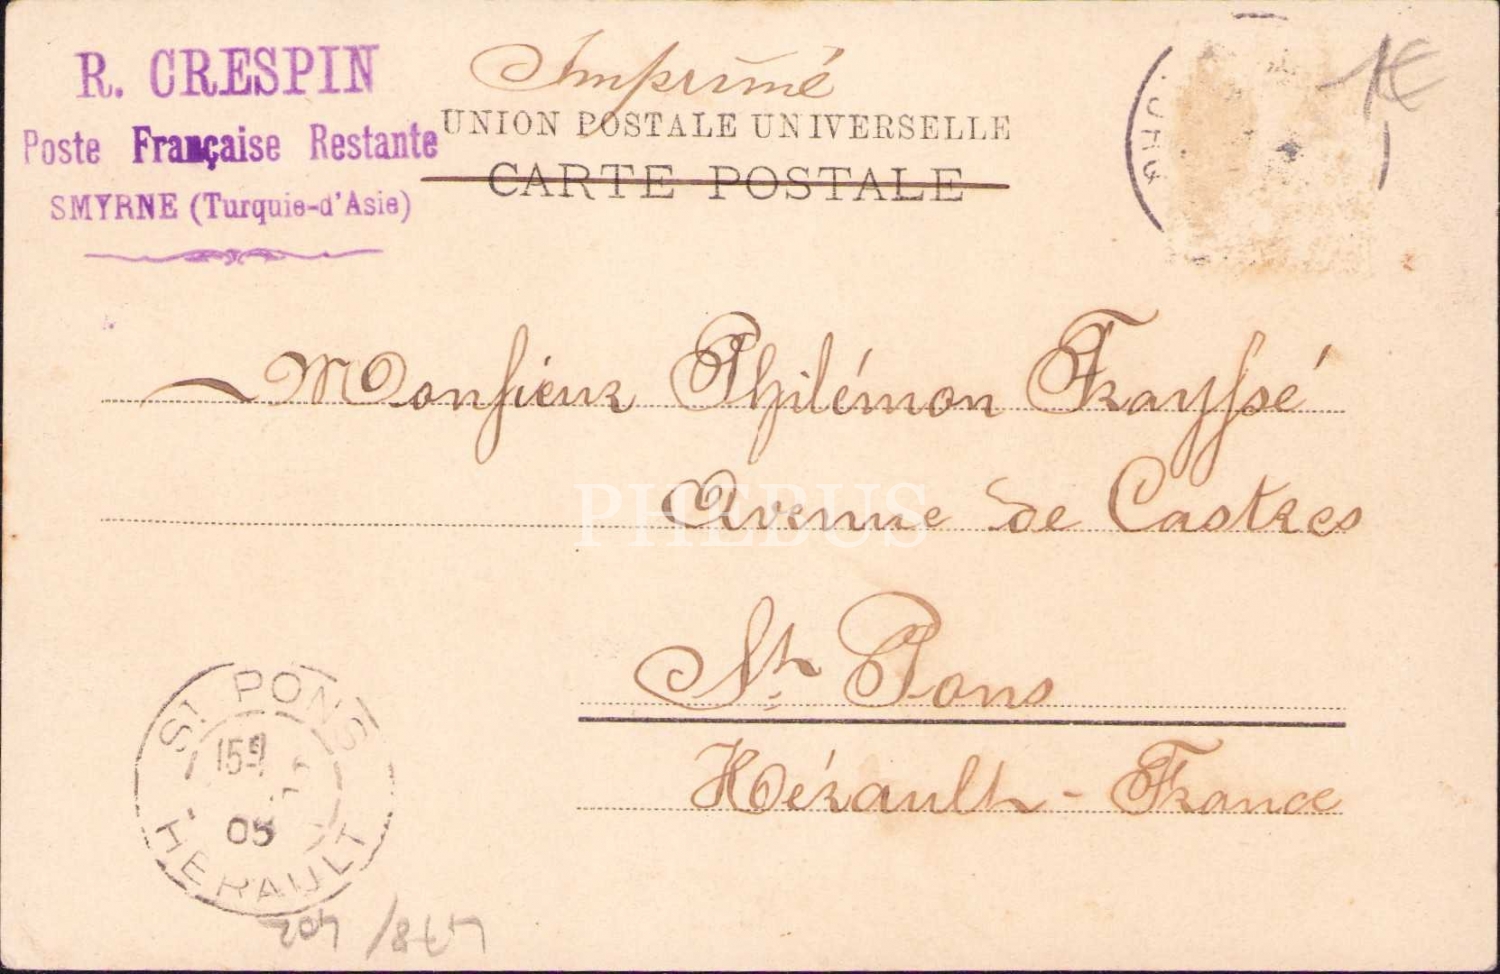 R. CRESPIN
Poste Française Restante
SMYRNE (Turquie-d'Asie)
Imprimé
UNION POSTALE UNIVERSELLE
CARTE POSTALE
1€
Monsieur Philémon Frayssé
Avenue de Castres
PHEBUS
St Pons
Hérault - France
ST PONS
15
05
HERAULT